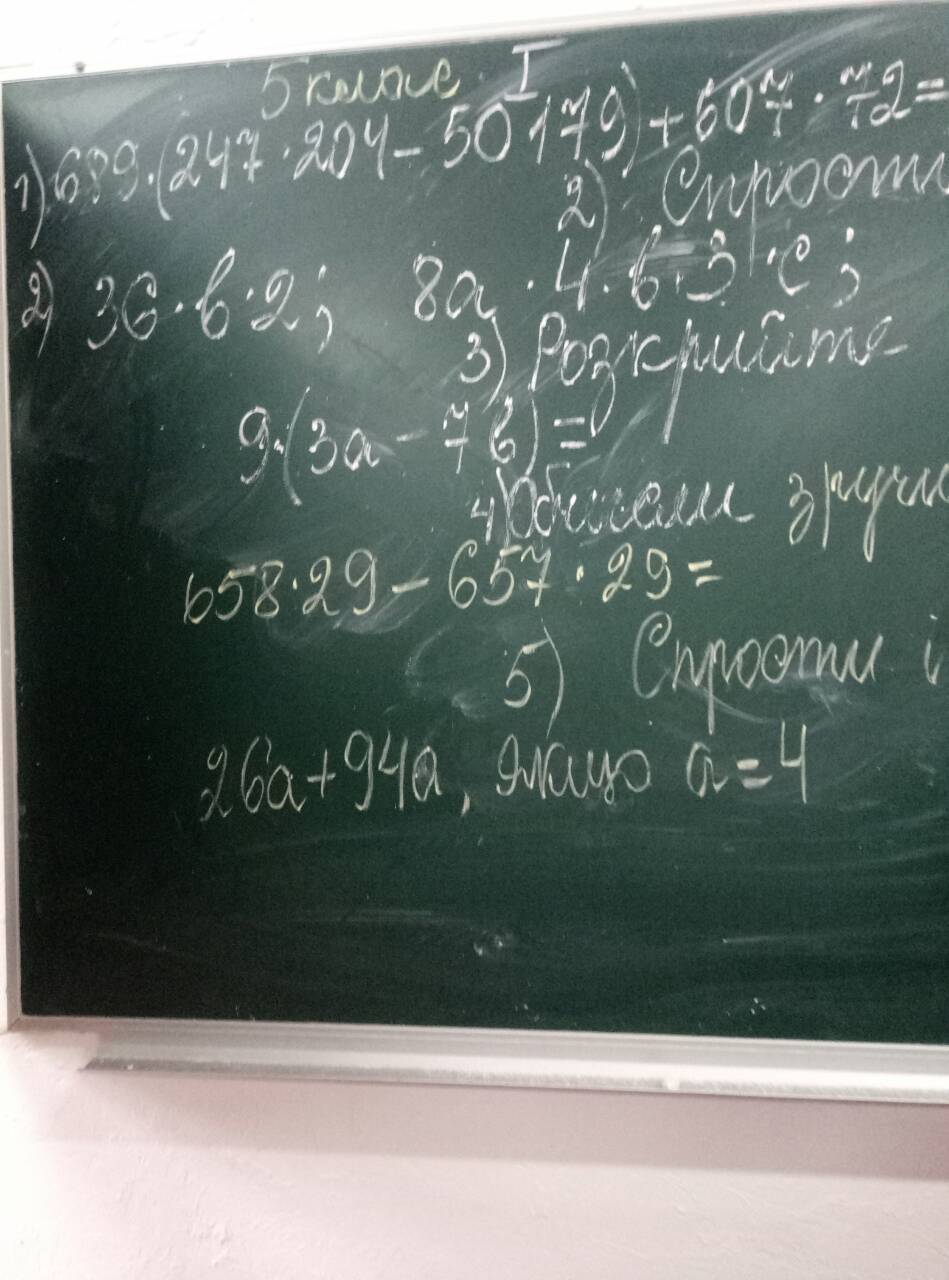 5 клас I
1) 689·(247·204-50179)+607·72=
2) Спрости
2) 36·в·2; 8а·4·в·3·с;
3) Розкрийте
9·(3а-7в)=
4)
658·29-657·29=
5) Спрости і
26а+94а, якщо а=4